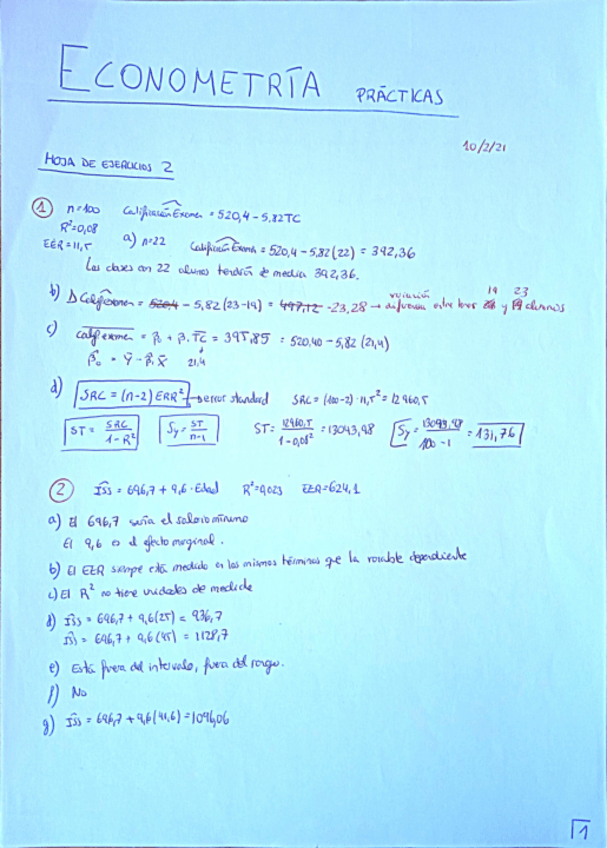 ECONOMETRÍA PRÁCTICAS
10/2/21
HOJA DE EJERCICIOS 2
① n=100 Calificación Examen = 520,4 - 5,82 TC
R²=0,08
EER=11,5 a) n=22 Calificación Examen = 520,4 - 5,82 (22) = 392,36
Las clases con 22 alumnos tendrán de media 392,36.
b) Δ Calif examen = 520,4 - 5,82 (23-19) = 497,12 -23,28 → variación diferencia entre tener 19 y 23 alumnos
c) calif examen = β₀ + β₁ TC = 395,85 = 520,40 - 5,82 (21,4)
β̂₀ = Ȳ - β̂₁ X̄ 21,4
d) SRC = (n-2) ERR² → error standard SRC = (100-2) · 11,5² = 12960,5
ST = SRC / 1-R² Sy = ST / n-1 ST = 12960,5 / 1-0,08² = 13043,98 Sy = 13043,98 / 100-1 = 131,76
② ISS = 696,7 + 9,6 · Edad R²=0,023 EER=624,1
a) El 696,7 sería el salario mínimo
El 9,6 es el efecto marginal.
b) El EER siempre está medido en los mismos términos que la variable dependiente
c) El R² no tiene unidades de medida
d) ISS = 696,7 + 9,6 (25) = 936,7
ISS = 696,7 + 9,6 (45) = 1128,7
e) Está fuera del intervalo, fuera del rango.
f) No
g) ISS = 696,7 + 9,6 (41,6) = 1096,06
1